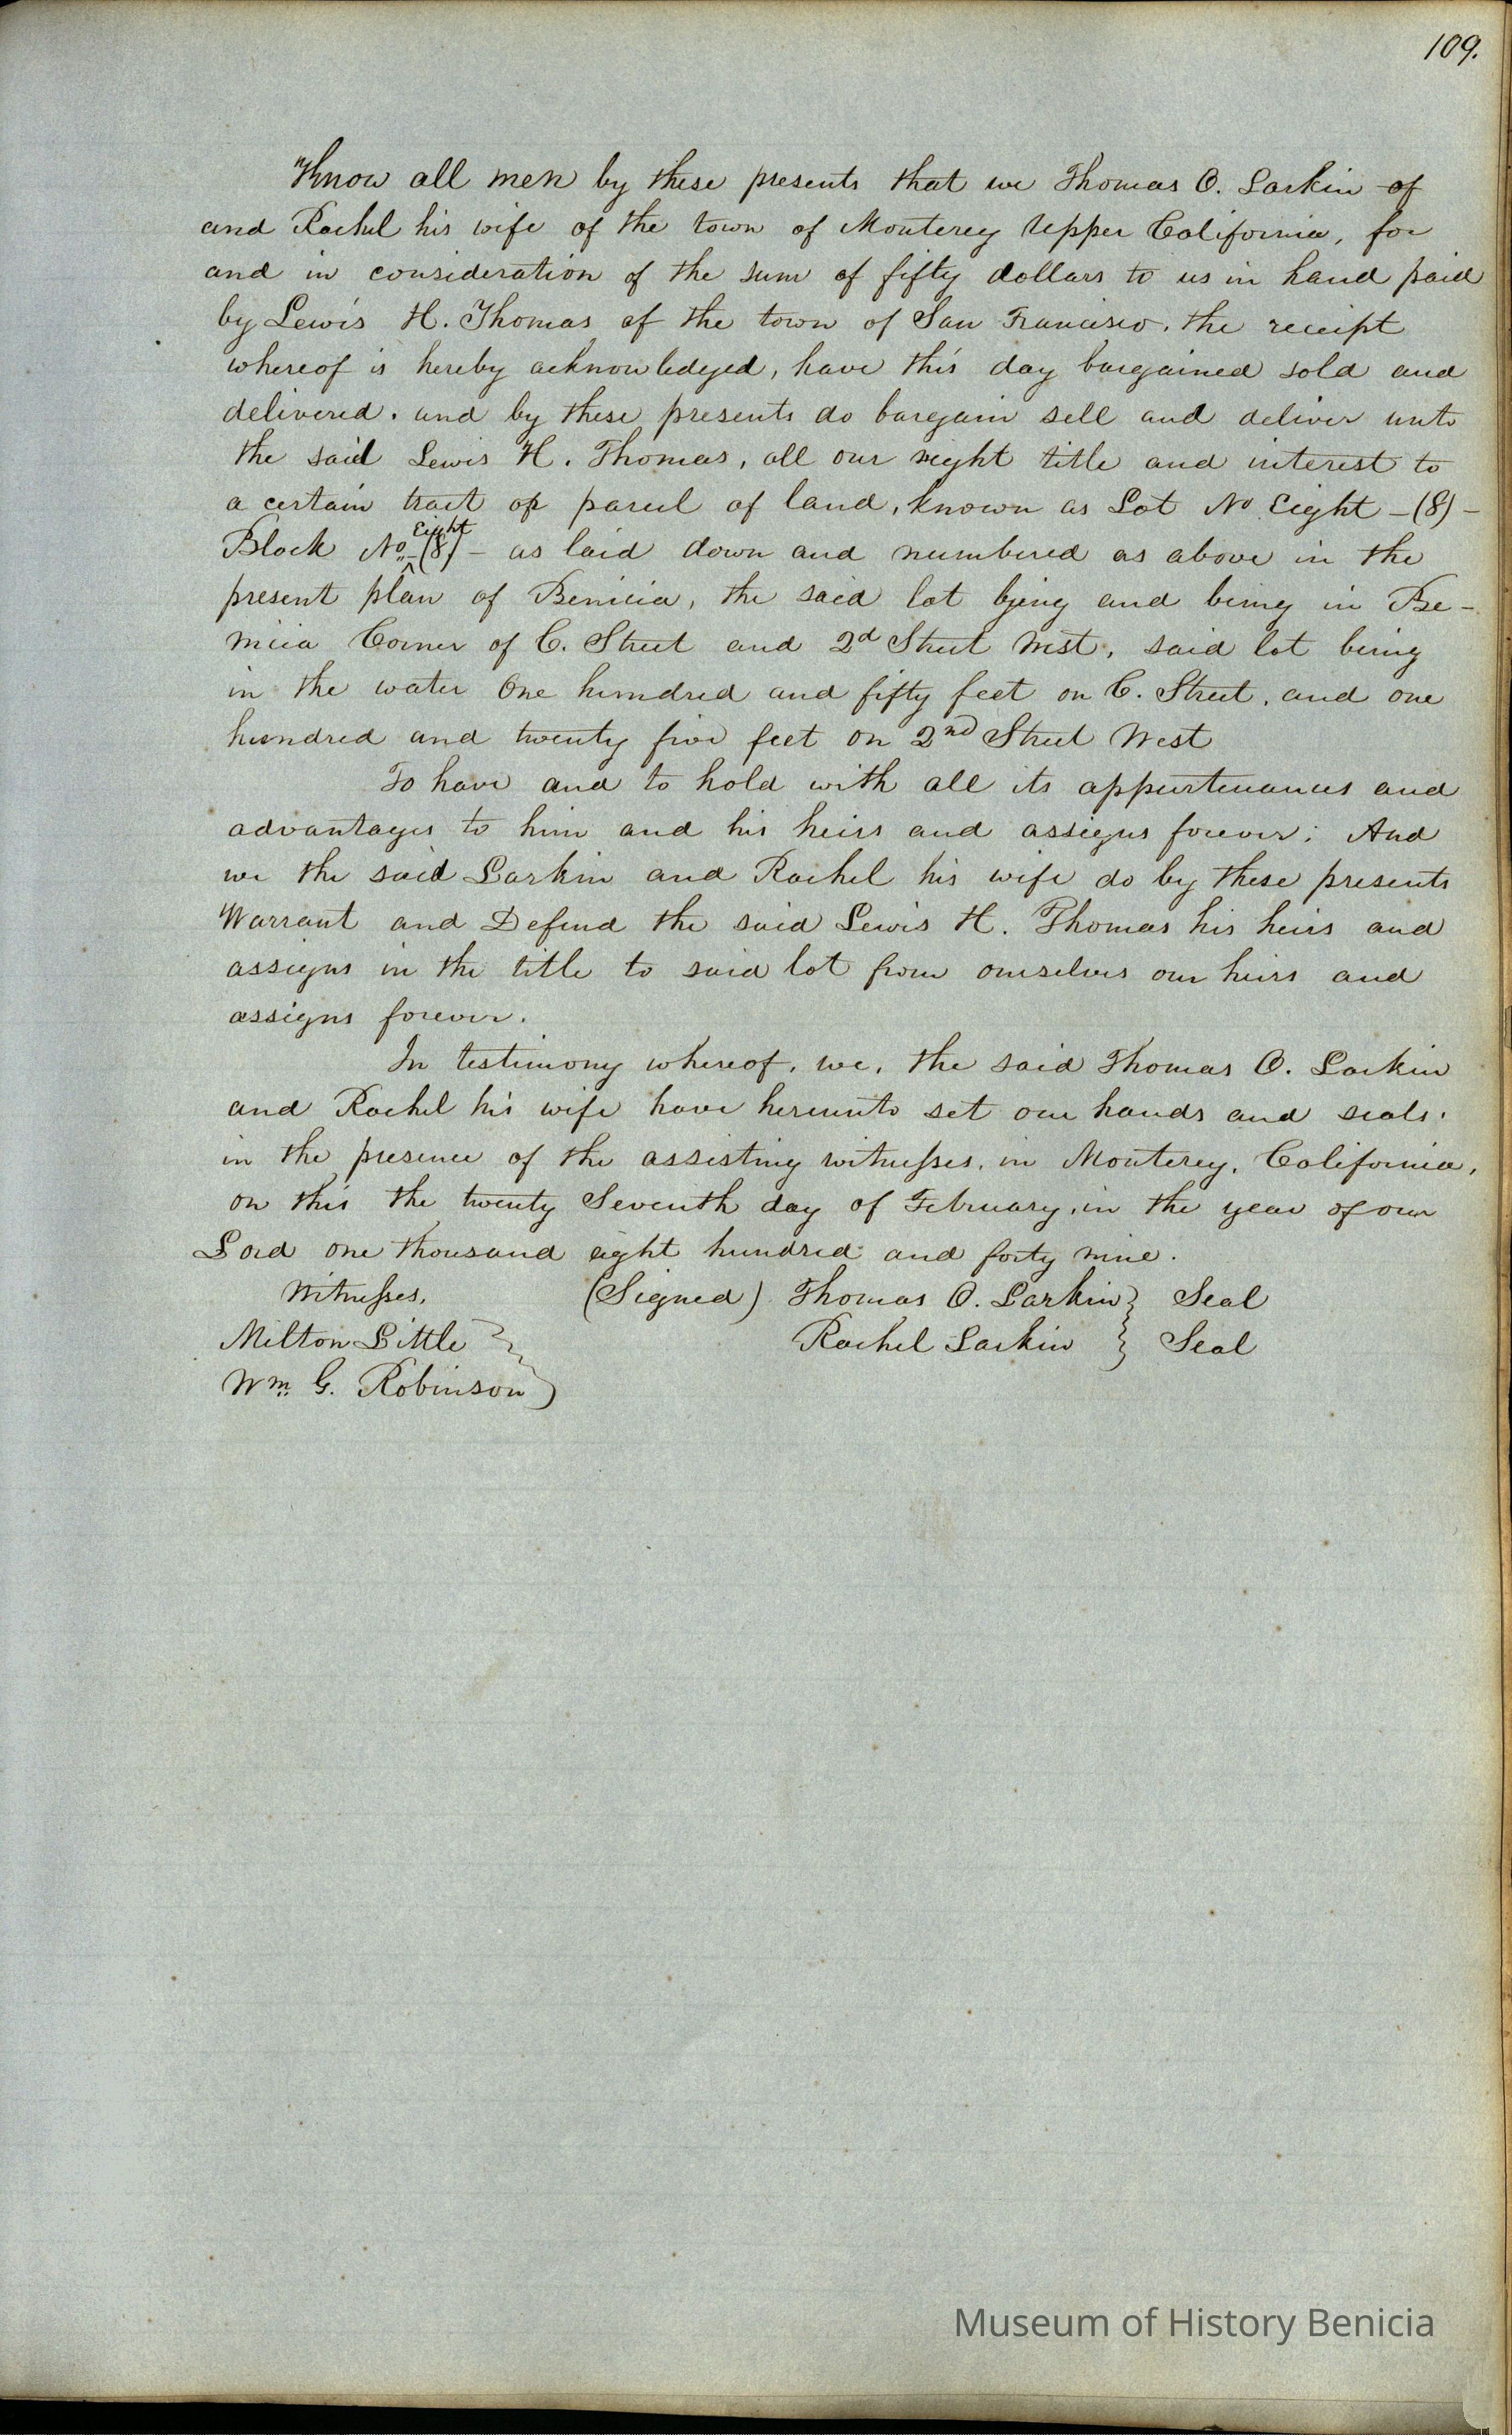 109.
Know all men by these presents that we Thomas O. Larkin of
and Rachel his wife of the town of Monterey Upper California, for
and in consideration of the sum of fifty dollars to us in hand paid
by Lewis H. Thomas of the town of San Francisco, the receipt
whereof is hereby acknowledged, have this day bargained sold and
delivered, and by these presents do bargain sell and deliver unto
the said Lewis H. Thomas, all our right title and interest to
a certain tract or parcel of land, known as Lot No Eight - (8) -
Block No. Eight (8) - as laid down and numbered as above in the
present plan of Benicia, the said lot lying and being in Be-
nicia Corner of C. Street and 2d Street West, said lot being
in the water One hundred and fifty feet on C. Street, and one
hundred and twenty five feet on 2nd Street West
To have and to hold with all its appurtenances and
advantages to him and his heirs and assigns forever; And
we the said Larkin and Rachel his wife do by these presents
Warrant and Defend the said Lewis H. Thomas his heirs and
assigns in the title to said lot from ourselves our heirs and
assigns forever.
In testimony whereof, we, the said Thomas O. Larkin
and Rachel his wife have hereunto set our hands and seals.
in the presence of the assisting witnesses, in Monterey, California,
on this the twenty Seventh day of February, in the year of our
Lord one thousand eight hundred and forty nine.
Witnesses, (Signed) Thomas O. Larkin } Seal
Milton Little } Rachel Larkin } Seal
Wm. G. Robinson }
Museum of History Benicia